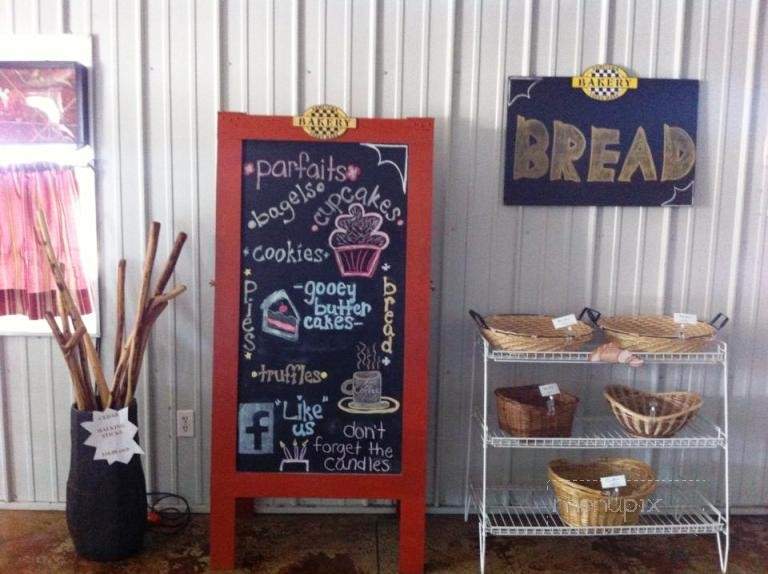 BAKERY
parfaits
bagels
cupcakes
cookies
pies
-gooey
butter
cakes-
bread
truffles
COFFEE
f
"Like"
us
don't
forget the
candles
BAKERY
BREAD
CEDAR
WALKING
STICKS
menupix